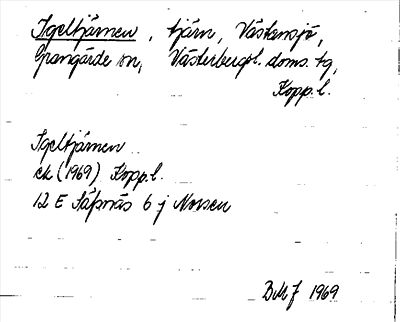 Igeltjärnen, tjärn, Västansjö,
Grangärde sn, Västerbergsl. doms. tg,
Kopp. l.
Igeltjärnen
ek (1969) Kopp. l.
12 E Säfsnäs 6 j Norsen
1969